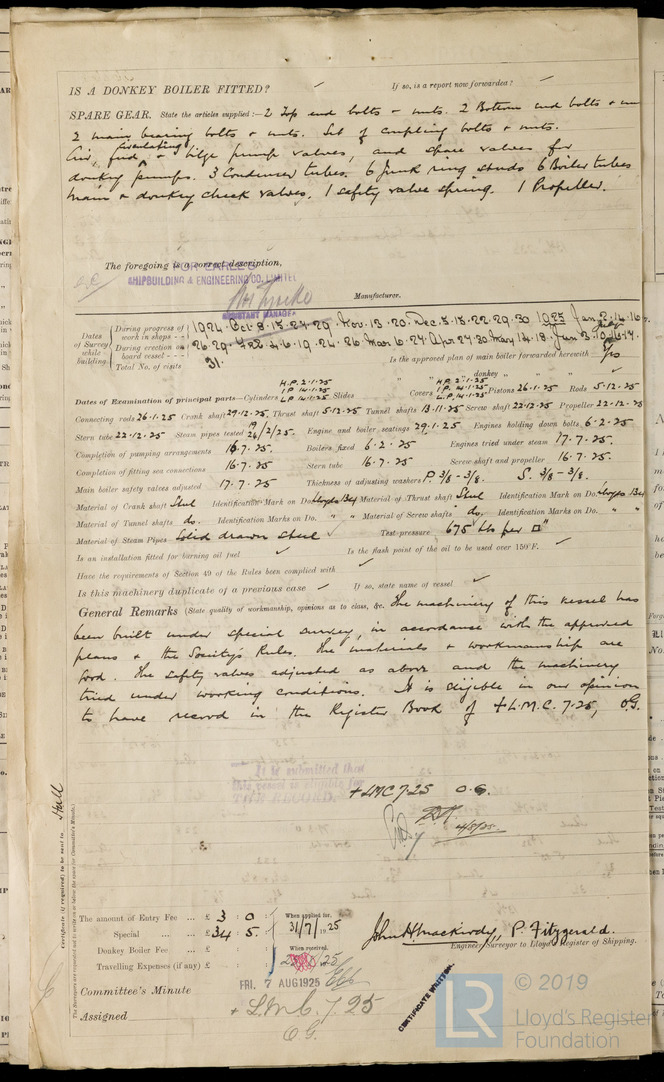 IS A DONKEY BOILER FITTED? ✓ If so, is a report now forwarded? ✓
SPARE GEAR. State the articles supplied:— 2 Top end bolts + nuts. 2 Bottom end bolts +
2 main bearing bolts + nuts. Set of coupling bolts + nuts.
Air, feed, circulating + bilge pump valves, and spare valves for
donkey pumps. 3 Condenser tubes. 6 junk ring studs 6 Boiler tubes
Main + donkey check valves. 1 safety valve spring. 1 Propeller.
The foregoing is a correct description,
FOR EARLE'S
SHIPBUILDING & ENGINEERING CO. LIMITED
ASSISTANT MANAGER
Manufacturer.
Dates of Survey while building
During progress of work in shops - - 1924. Oct. 8. 15. 24. 29. Nov. 13. 20. Dec. 5. 15. 22. 29. 30 1925 Jan. 2. 14. 16
During erection on board vessel - - - 26. 29. Feb. 4. 6. 19. 24. 26 Mar. 6. 24 Apr. 24. 30 May 14. 18. Jun 3. July 10. 16. 17.
Total No. of visits 31. Is the approved plan of main boiler forwarded herewith Yes
" " " donkey " " " ✓
Dates of Examination of principal parts—Cylinders H.P. 2.1.25 I.P. 14.1.25 L.P. 14.1.25 Slides Covers H.P. 2.1.25 I.P. 14.1.25 L.P. 14.1.25 Pistons 26.1.25 Rods 5.12.25
Connecting rods 26.1.25 Crank shaft 29.12.25 Thrust shaft 5.12.25 Tunnel shafts 13.11.25 Screw shaft 22.12.25 Propeller 22.12.25
Stern tube 22.12.25 Steam pipes tested 19/26/2/25. Engine and boiler seatings 29.1.25 Engines holding down bolts 6.2.25
Completion of pumping arrangements 16.7.25. Boilers fixed 6.2.25 Engines tried under steam 17.7.25.
Completion of fitting sea connections 16.7.25. Stern tube 16.7.25 Screw shaft and propeller 16.7.25.
Main boiler safety valves adjusted 17.7.25 Thickness of adjusting washers P. 3/8 – 3/8. S. 3/8 – 3/8.
Material of Crank shaft Steel Identification Mark on Do. Lloyds Material of Thrust shaft Steel Identification Mark on Do. Lloyds
Material of Tunnel shafts do. Identification Marks on Do. " " Material of Screw shafts do. Identification Marks on Do. " "
Material of Steam Pipes Solid drawn steel ✓ Test pressure 675 lbs per □"
Is an installation fitted for burning oil fuel ✓ Is the flash point of the oil to be used over 150°F. ✓
Have the requirements of Section 49 of the Rules been complied with ✓
Is this machinery duplicate of a previous case ✓ If so, state name of vessel ✓
General Remarks (State quality of workmanship, opinions as to class, &c. The machinery of this vessel has
been built under special survey, in accordance with the approved
plans + the Society's Rules. The materials + workmanship are
good. The safety valves adjusted as above and the machinery
tried under working conditions. It is eligible in our opinion
to have record in the Register Book of +L.M.C. 7.25, O.G.
It is submitted that
this vessel is eligible for
THE RECORD.
+ LMC 7.25 O.G.
4/8/25.
Certificate (if required) to be sent to Hull
The amount of Entry Fee ... £ 3 : 0 : When applied for,
Special ... £ 34 : 5 : 31/7/1925
Donkey Boiler Fee ... £ : : When received,
Travelling Expenses (if any) £ : : 25
John H Mackirdy, P. Fitzgerald.
Engineer Surveyor to Lloyd's Register of Shipping.
Committee's Minute FRI. 7 AUG 1925
Assigned + L.M.C. 7.25
O.G.
CERTIFICATE WRITTEN.
LR © 2019
Lloyd's Register
Foundation